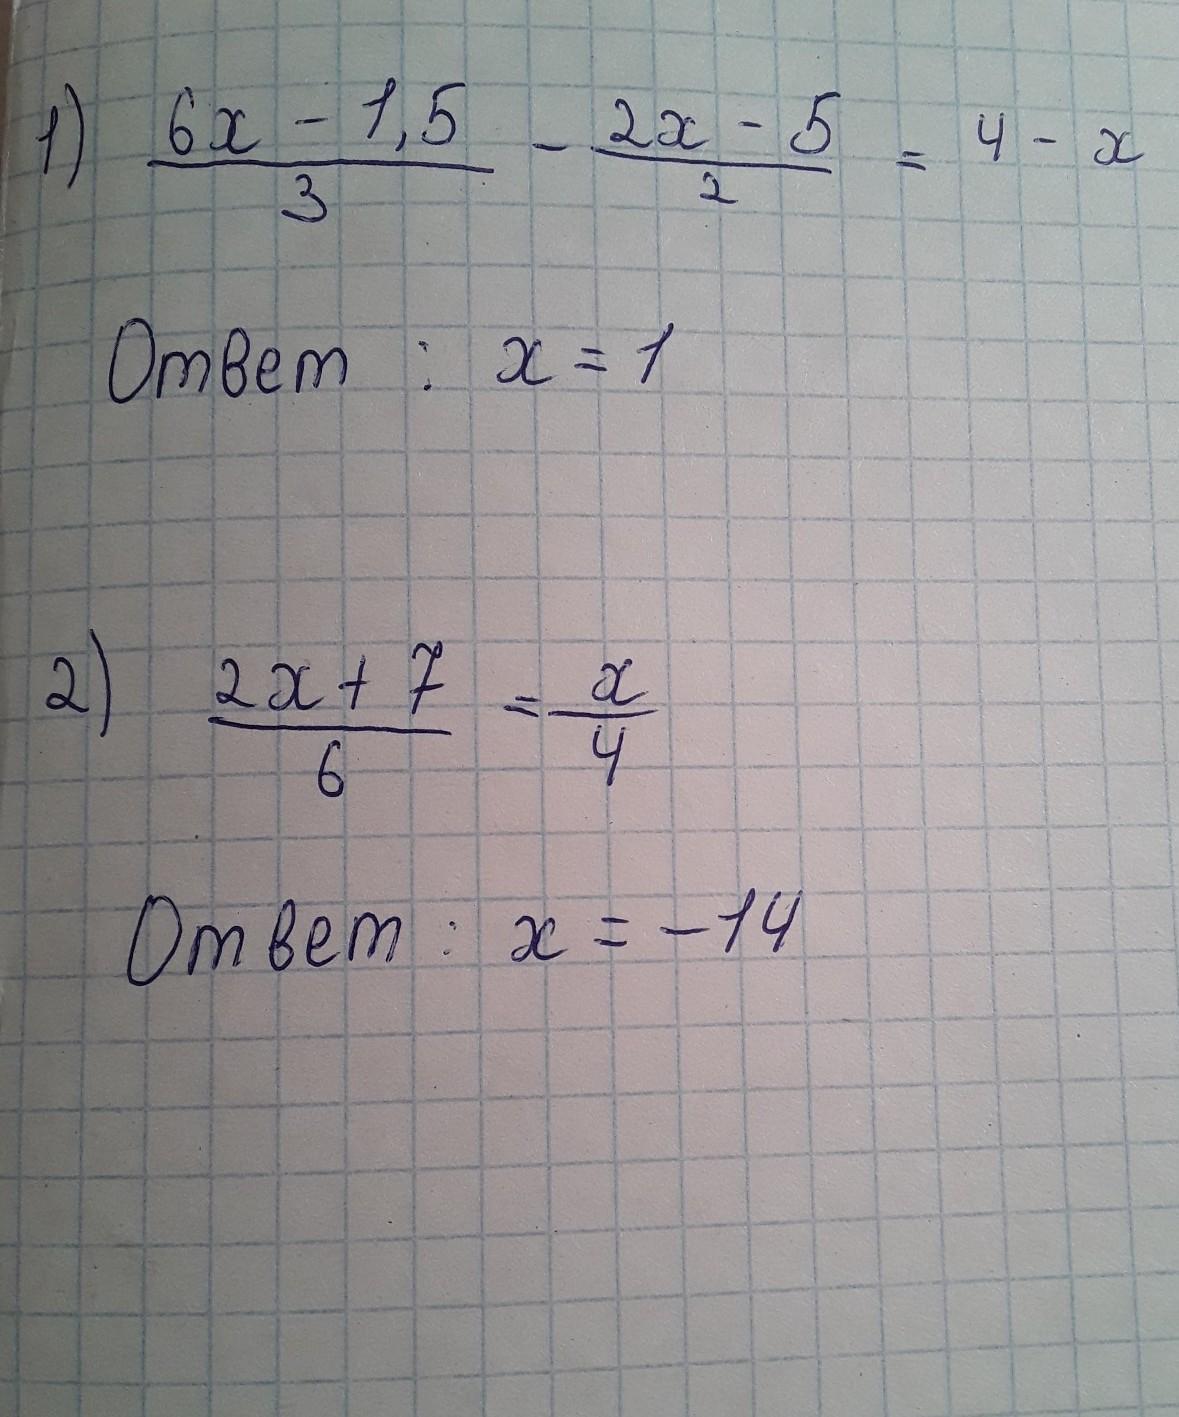 1) (6x - 1,5)/3 - (2x - 5)/2 = 4 - x
Ответ : x = 1
2) (2x + 7)/6 = x/4
Ответ : x = -14